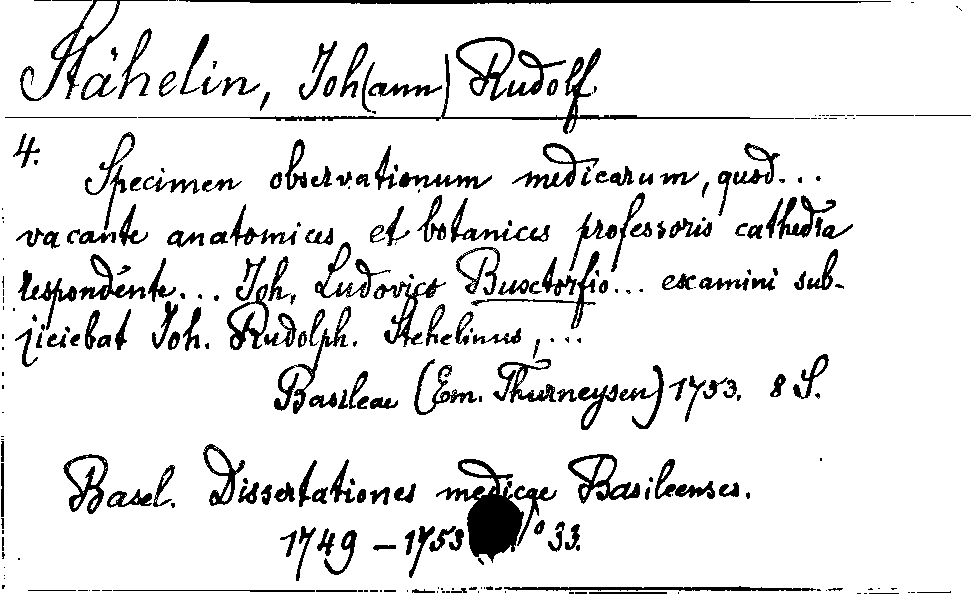 Stähelin, Joh(ann) Rudolf
4.
Specimen observationum medicarum, quod...
vacante anatomices et botanices professoris cathedra
respondente... Joh. Ludovico Buxtorfio... examini sub-
jiciebat Joh. Rudolph. Stehelinus, ...
Basileae (Em. Thurneysen) 1753. 8 S.
Basel. Dissertationes medicae Basileenses.
1749 – 1753 No 33.